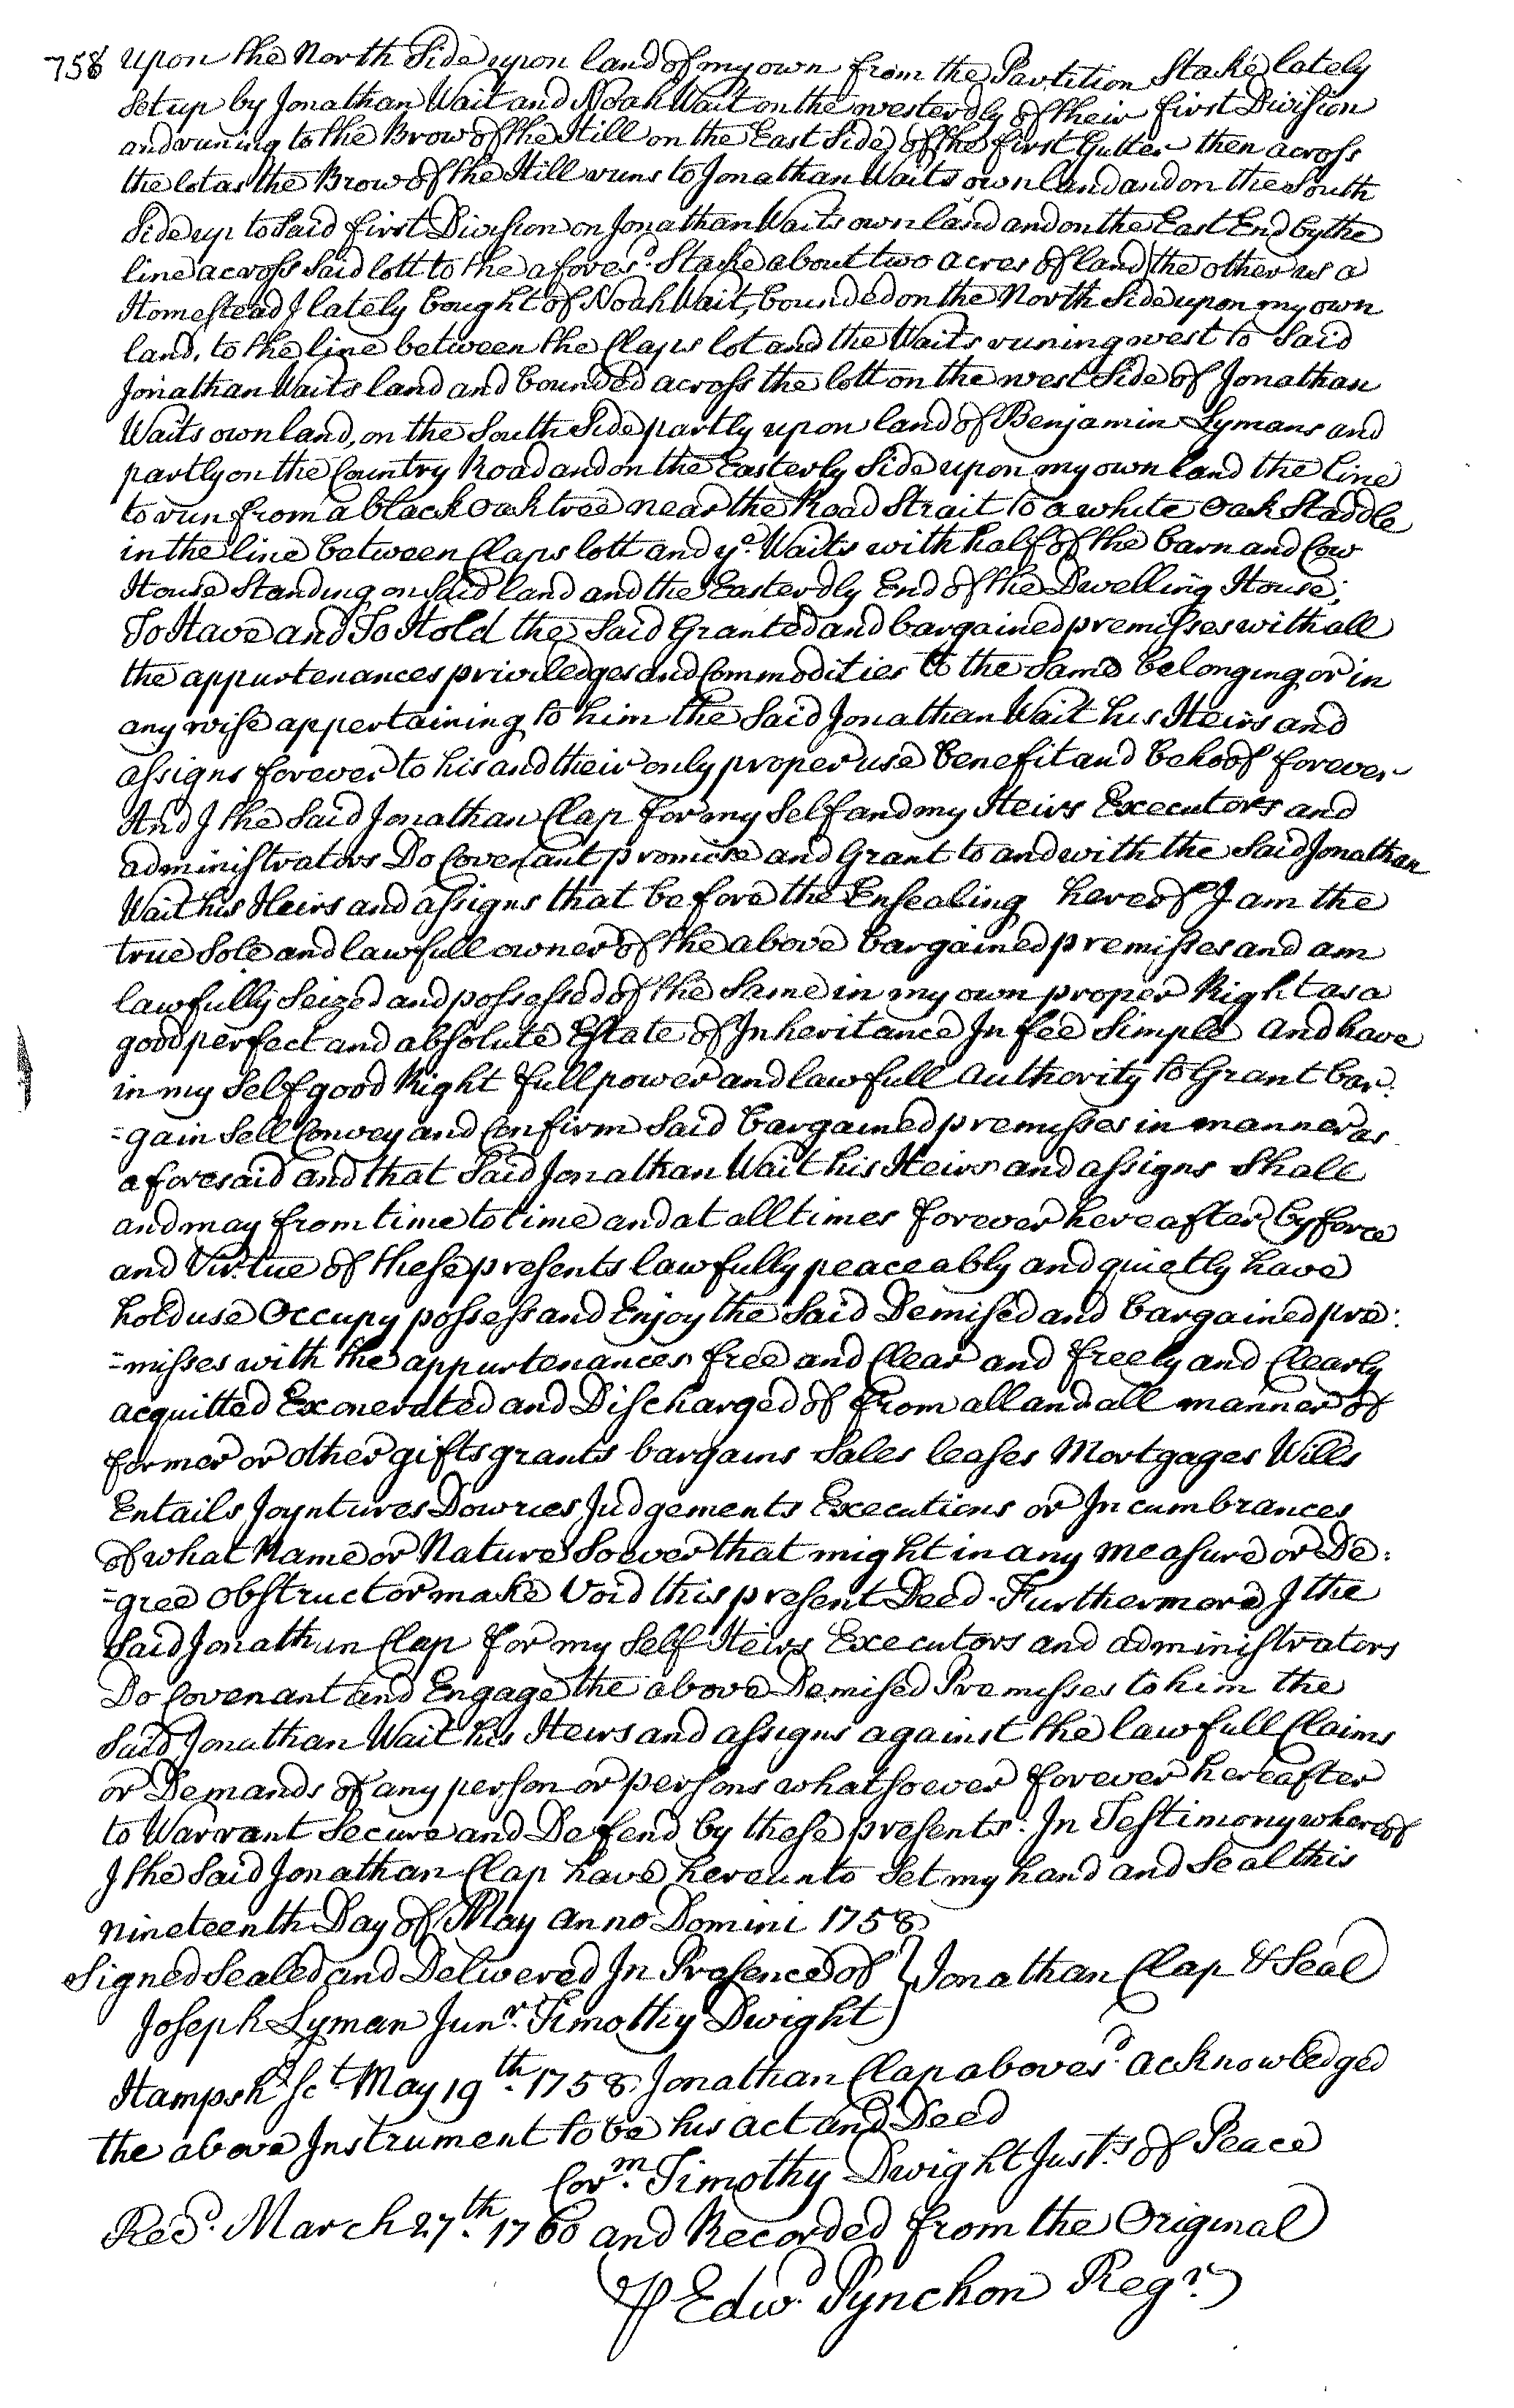 758 upon the North Side upon land of my own from the Partition Stake lately
Set up by Jonathan Wait and Noah Wait on the westerdly of their first Division
and runing to the Brow of the Hill on the East Side of the first Gutter then across
the lot as the Brow of the Hill runs to Jonathan Waits own land and on the South
Side up to Said first Division on Jonathan Waits own land and on the East End by the
line across Said lott to the afores.d Stake about two acres of land the other is a
Homestead I lately bought of Noah Wait, bounded on the North Side upon my own
land, to the line between the Claps lot and the Waits runing west to Said
Jonathan Waits land and bounded across the lott on the west Side of Jonathan
Waits own land, on the South Side partly upon land of Benjamin Lymans and
partly on the Country Road and on the Easterly Side upon my own land the line
to run from a black oak tree near the Road Strait to a white oak Staddle
in the line between Claps lott and y.e Waits with half of the barn and Cow
House Standing on Said land and the Easterdly End of the Dwelling House;
To Have and To Hold the Said Granted and bargained premisses with all
the appurtenances priviledges and Commodities to the Same belonging or in
any wise appertaining to him the Said Jonathan Wait his Heirs and
assigns forever to his and their only proper use benefit and behoof forever
And I the Said Jonathan Clap for my Self and my Heirs Executors and
administrators Do Covenant promise and Grant to and with the Said Jonathan
Wait his Heirs and assigns that before the Ensealing hereof I am the
true Sole and lawfull owner of the above bargained premisses and am
lawfully Seized and possessed of the Same in my own proper Right as a
good perfect and absolute Estate of Inheritance In fee Simple and have
in my Self good Right full power and lawfull authority to Grant bar:
=gain Sell Convey and Confirm Said bargained premisses in manner as
aforesaid and that Said Jonathan Wait his Heirs and assigns Shall
and may from time to time and at all times forever hereafter by force
and Virtue of these presents lawfully peaceably and quietly have
hold use Occupy possess and Enjoy the Said Demised and bargained pre:
=misses with the appurtenances free and Clear and freely and Clearly
acquitted Exonerated and Discharged of from all and all manner of
former or other gifts grants bargains Sales leases Mortgages Wills
Entails Joyntures Dowries Judgements Executions or Incumbrances
of what Name or Nature Soever that might in any measure or De:
=gree obstruct or make Void this present Deed. Furthermore I the
Said Jonathan Clap for my Self Heirs Executors and administrators
Do Covenant and Engage the above Demised Premisses to him the
Said Jonathan Wait his Heirs and assigns against the lawfull Claims
or Demands of any person or persons whatsoever forever hereafter
to Warrant Secure and Defend by these presents. In Testimony whereof
I the Said Jonathan Clap have hereunto Set my hand and Seal this
nineteenth Day of May anno Domini 1758
Signed Sealed and Delivered In Presence of } Jonathan Clap & Seal
Joseph Lyman Jun.r Timothy Dwight
Hampsh.r Sc.t May 19th. 1758 Jonathan Clap aboves.d acknowledged
the above Instrument to be his act and Deed
Cor.m Timothy Dwight Just.s of Peace
Rec.d March 27th. 1760 and Recorded from the Original
P Edw.d Pynchon Reg.r